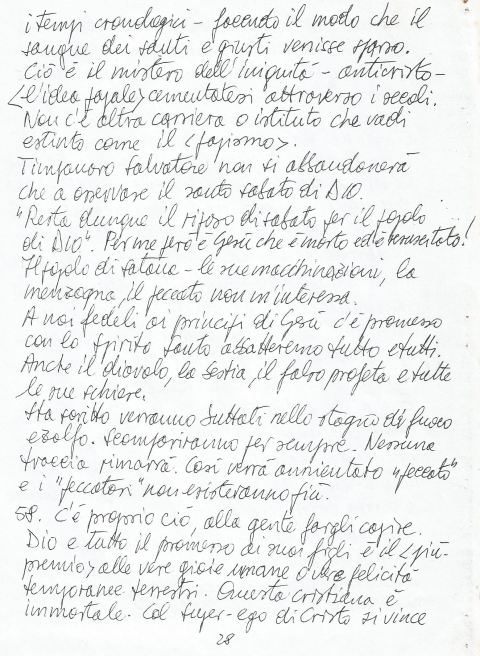 i tempi cronologici - facendo il modo che il
sangue dei santi e giusti venisse sparso.
Ciò è il mistero dell'iniquità - anticristo -
<l'idea papale> cementatesi attraverso i secoli.
Non c'è altra carriera o istituto che vadi
estinto come il <papismo>.
Timpanaro Salvatore non si abbandonerà
che a osservare il santo sabato di DIO.
"Resta dunque il riposo di sabato per il popolo
di DIO". Per me però è Gesù che è morto ed è resuscitato!
Il popolo di satana - le sue macchinazioni, la
menzogna, il peccato non m'interessa.
A noi fedeli ai principi di Gesù c'è promesso
con lo Spirito Santo abbatteremo tutto e tutti.
Anche il diavolo, la bestia, il falso profeta e tutte
le sue schiere.
Sta scritto verranno buttati nello stagno di fuoco
e zolfo. Scompariranno per sempre. Nessuna
traccia rimarrà. Così verrà annientato "peccato"
e i "peccatori" non esisteranno più.
58. C'è proprio ciò, alla gente fargli capire.
Dio e tutto il promesso ai suoi figli è il <più-
premio> alle vere gioie umane o vera felicità
temporanee terrestri. Questa cristiana è
immortale. Col super-ego di Cristo si vince
28